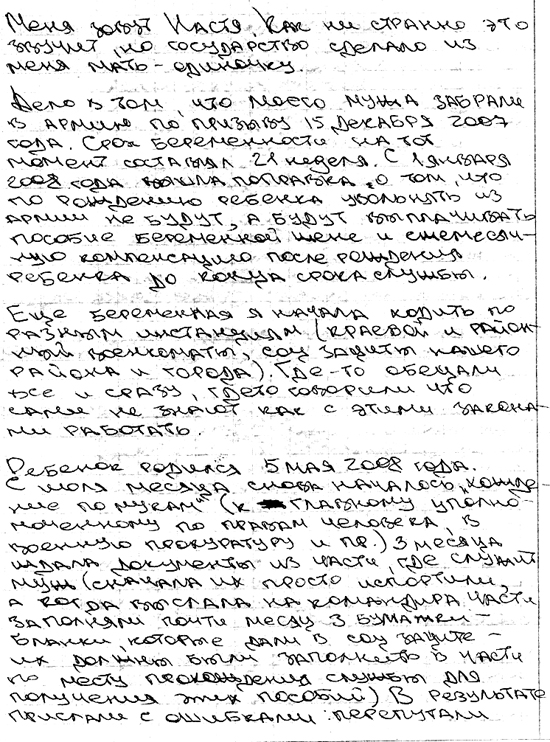 Меня зовут Настя. Как ни странно это
звучит, но государство сделало из
меня мать-одиночку.
Дело в том, что моего мужа забрали
в армию по призыву 15 декабря 2007
года. Срок беременности на тот
момент составлял 21 неделя. С 1 января
2008 года вышла поправка о том, что
по рождению ребенка увольнять из
армии не будут, а будут выплачивать
пособие беременной жене и ежемесяч-
ную компенсацию после рождения
ребенка до конца срока службы.
Еще беременная я начала ходить по
разным инстанциям (краевой и район-
ный военкоматы, соц защиты нашего
района и города). Где-то обещали
все и сразу, где то говорили что
сами не знают как с этими закона-
ми работать.
Ребенок родился 5 мая 2008 года.
С июля месяца снова началось „хожде-
ние по мукам“ (к главному уполно-
моченному по правам человека, в
военную прокуратуру и пр.) 3 месяца
ждала документы из части, где служит
муж (сначала их просто испортили,
а когда выслала на командира части
заполняли почти месяц 3 бумажки-
бланки, которые дали в соц защите -
их должны были заполнить в части
по месту прохождения службы для
получения этих пособий) В результате
прислали с ошибками: перепутали